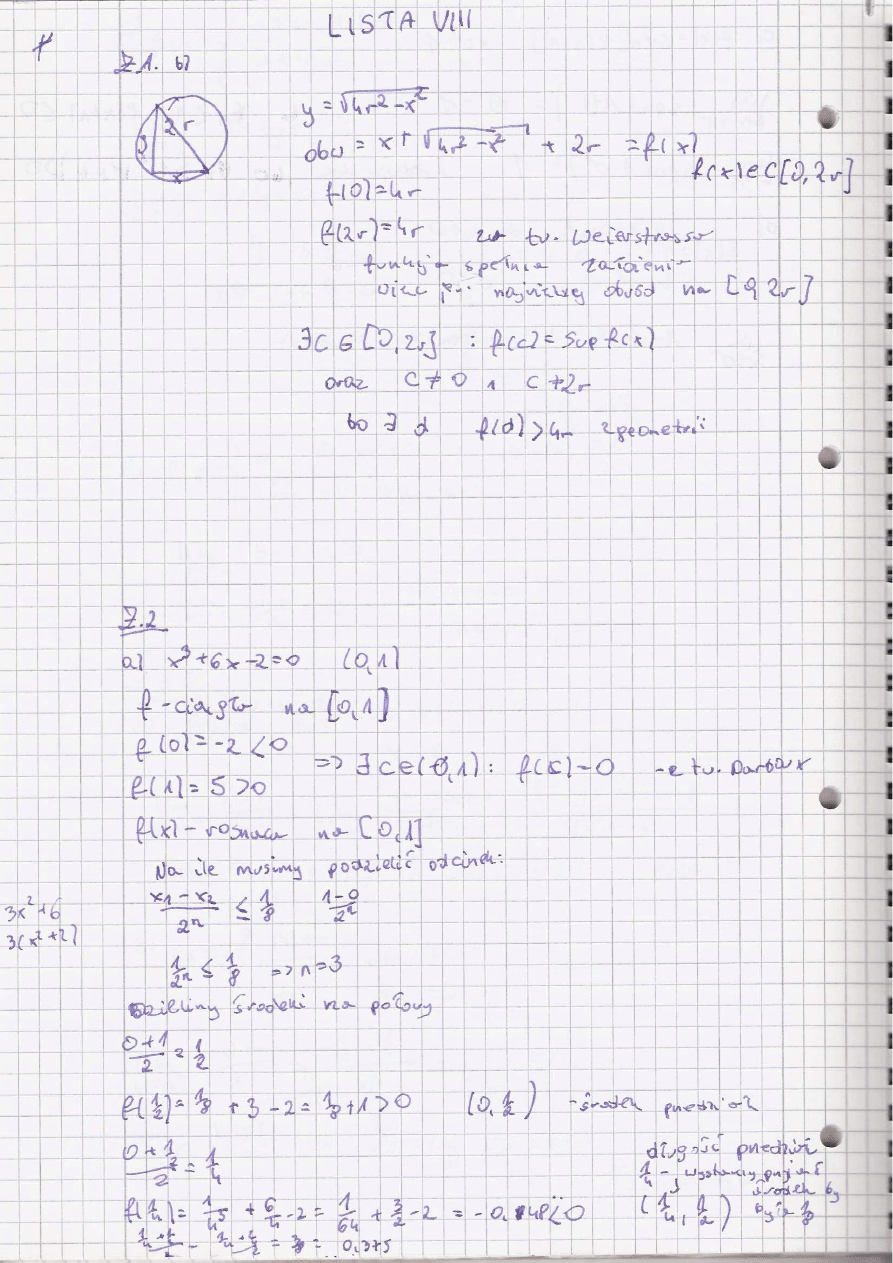 LISTA VIII
Z1. b)
2r
x
y = √4r²-x²
obw = x + √4r²-x² + 2r = f(x)
f(x) ∈ C[0,2r]
f(0)=4r
f(2r)=4r tw. Weierstrassa
funkcja spełnia założenia
więc największy obwód na [0,2r]
∃ c ∈ [0,2r] : f(c) = sup f(x)
oraz c≠0 ∧ c≠2r
bo ∃ d f(d) > 4r z geometrii
Z.2
a) x³+6x-2=0 (0,1)
f - ciągła na [0,1]
f(0) = -2 < 0
=> ∃ c∈(0,1): f(c)=0 - z tw. Darboux
f(1) = 5 > 0
f(x) - rosnąca na [0,1]
Na ile musimy podzielić odcinek:
3x²+6
3(x²+2)
x1-x2/2ⁿ ≤ 1/8 1-0/2ⁿ
1/2ⁿ ≤ 1/8 => n=3
Dzielimy środek na połowy
0+1/2 = 1/2
f(1/2) = 1/8 + 3 - 2 = 1/8 + 1 > 0 (0, 1/2) - środek
0+1/2/2 = 1/4
długość
1/4 - wystarczy
środek by
f(1/4) = 1/4³ + 6/4 - 2 = 1/64 + 3/2 - 2 = -0,48 < 0 (1/4, 1/2) 1/8
= 3/8 = 0,375